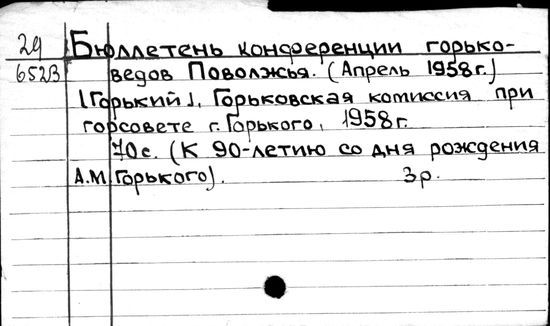 29 Бюллетень конференции горько-
652В ведов Поволжья. (Апрель 1958г.)
[Горький], Горьковская комиссия при
горсовете г. Горького, 1958г.
70с. (К 90-летию со дня рождения
А.М.Горького). 3р.